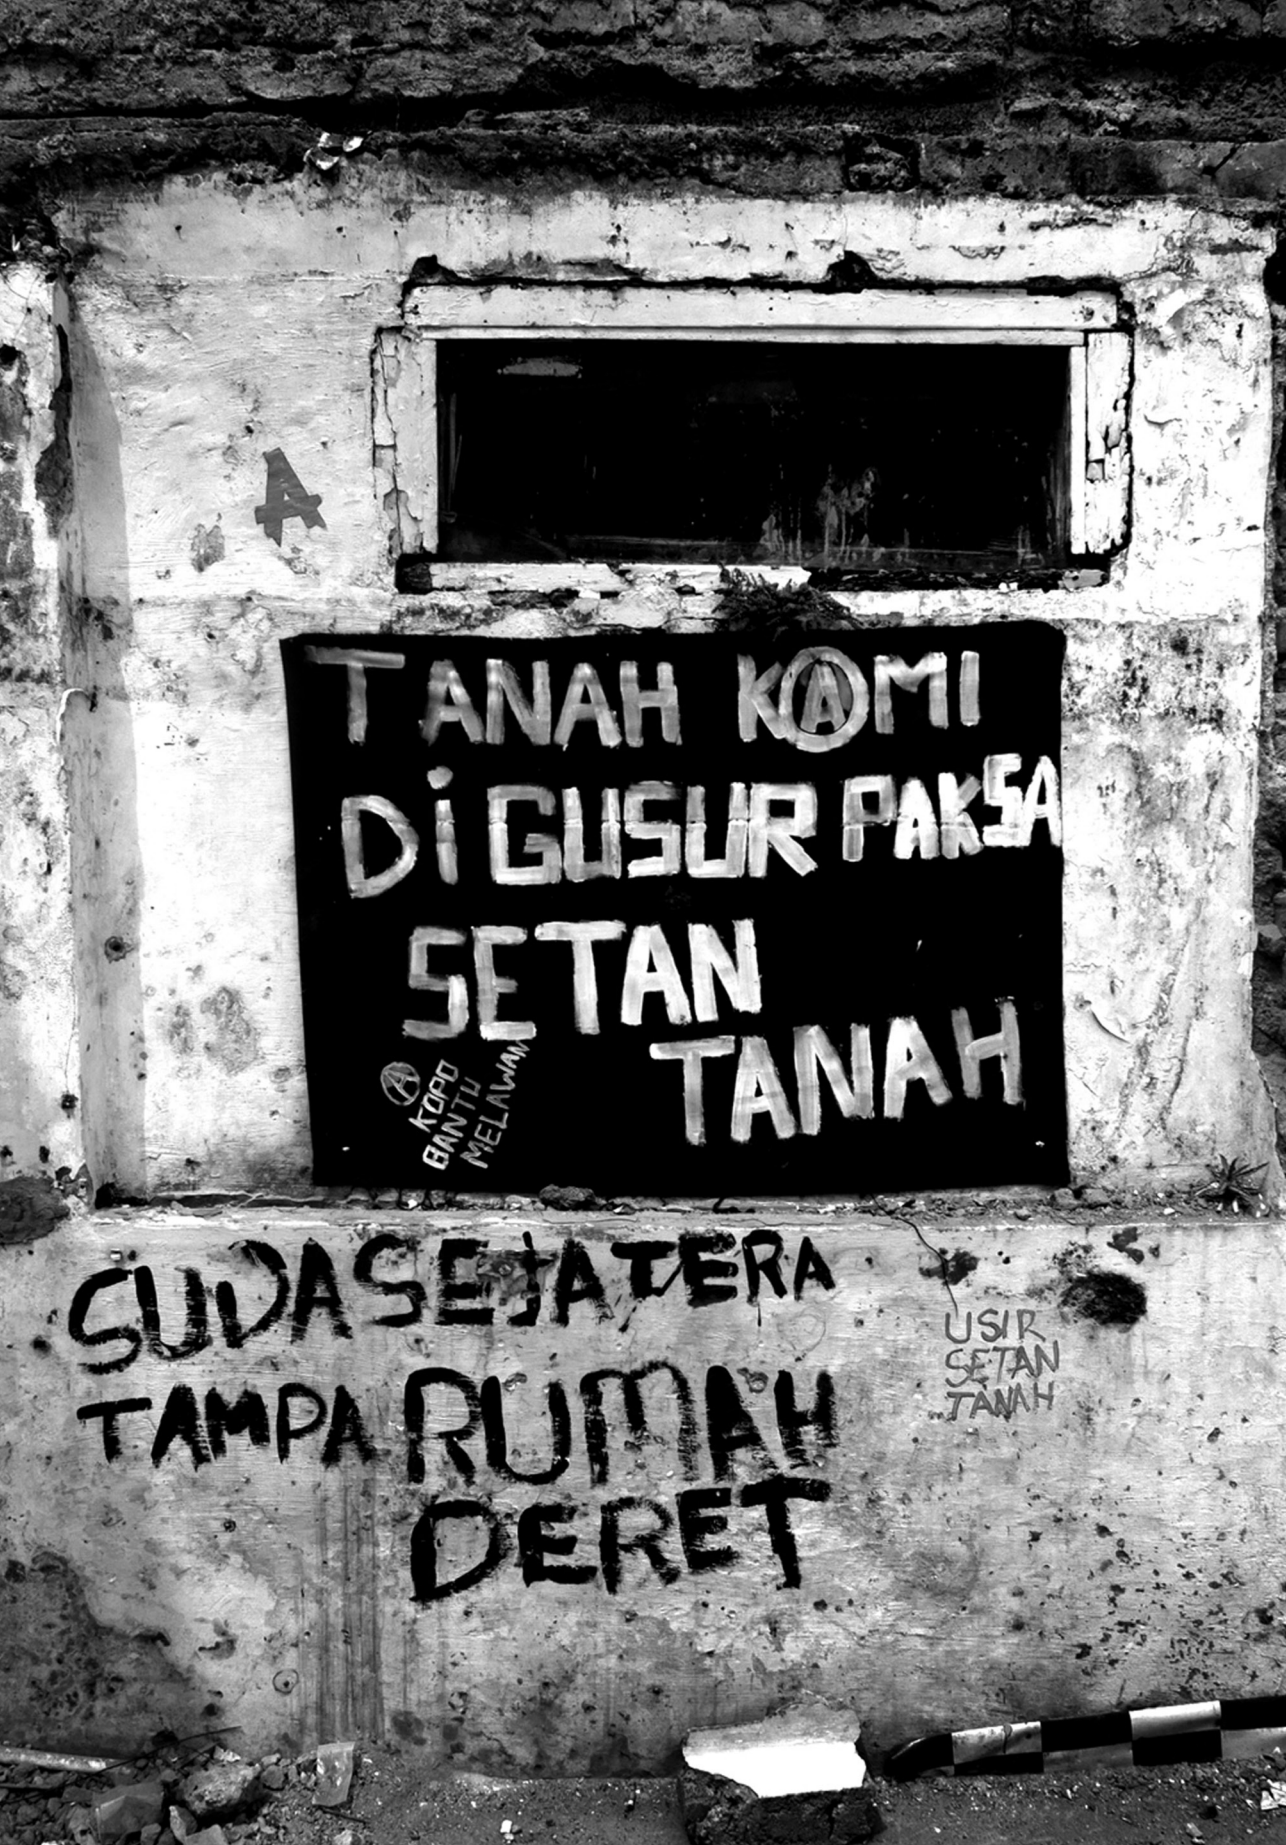 A
TANAH KAMI
DiGUSUR PAKSA
SETAN
TANAH
A
KOPO
BANTU
MELAWAN
SUDA SEJATERA
TAMPA RUMAH
DERET
USIR
SETAN
TANAH